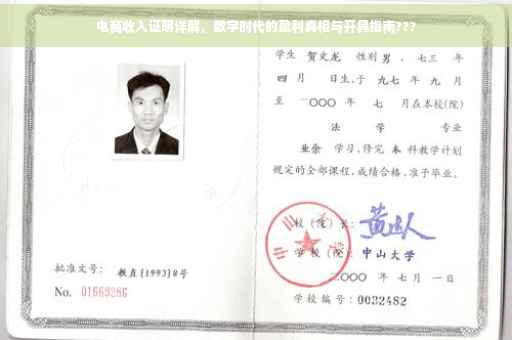 电商收入证明详解，数字时代的盈利真相与开具指南???
学生 贺文龙 性别 男 ，七三 年
四 月 日生，于 九七 年 九 月
至 二〇〇〇 年 七 月在本校(院)
法 学 专业
业余 学习，修完 本 科教学计划
规定的全部课程，成绩合格，准予毕业。
校（院）长：
学校（院）：中山大学
二〇〇〇 年 七 月 一 日
学校编号：0032482
批准文号： 教直[1993]8号
No. 01669286